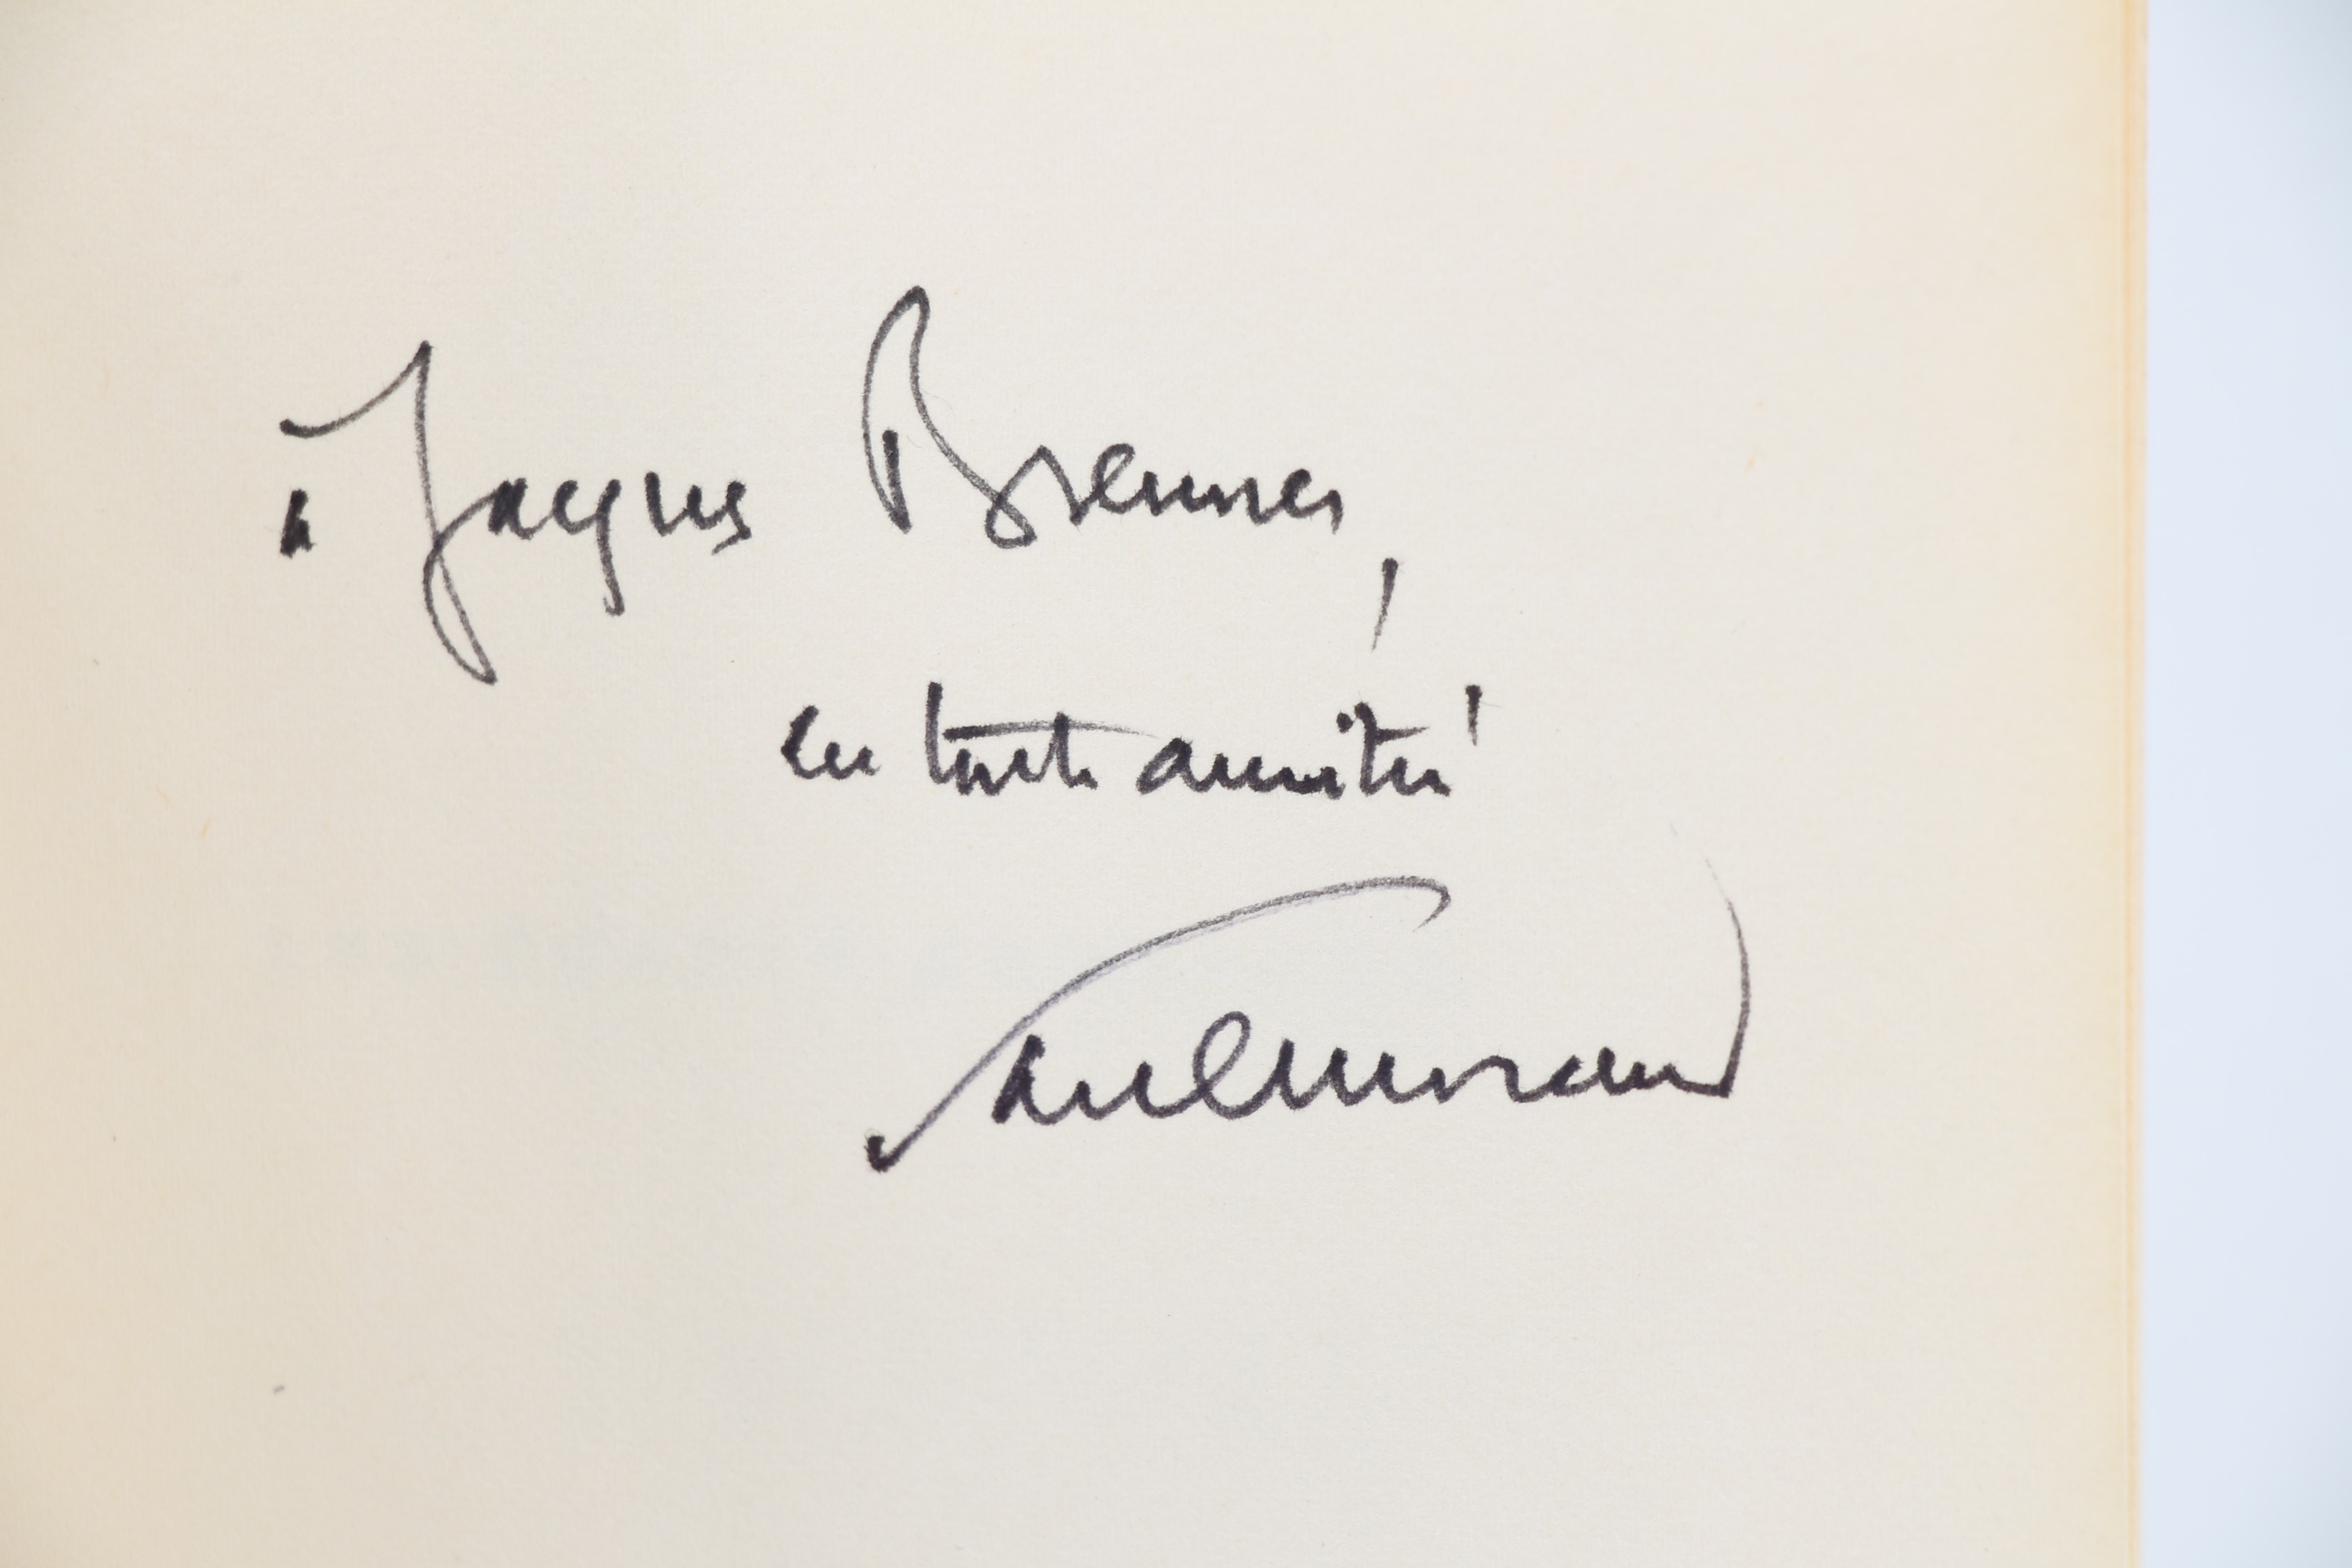 à Jacques Brenner,
en toute amitié
Paul Morand